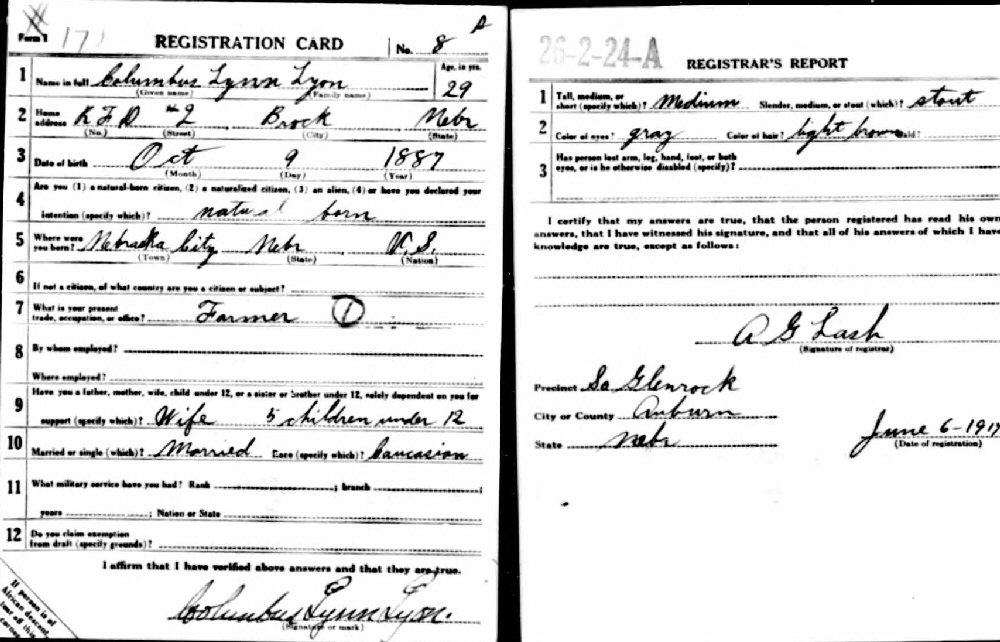 Form 1 171 REGISTRATION CARD No. 8 A
1 Name in full Columbus Lynn Lyon Age, in yrs. 29
(Given name) (Family name)
2 Home address R F D #2 Brock Nebr
(No.) (Street) (City) (State)
3 Date of birth Oct 9 1887
(Month) (Day) (Year)
4 Are you (1) a natural-born citizen, (2) a naturalized citizen, (3) an alien, (4) or have you declared your
intention (specify which)? natural born
5 Where were you born? Nebraska City Nebr U.S.
(Town) (State) (Nation)
6 If not a citizen, of what country are you a citizen or subject?
7 What is your present trade, occupation, or office? Farmer 1
8 By whom employed?
Where employed?
9 Have you a father, mother, wife, child under 12, or a sister or brother under 12, solely dependent on you for
support (specify which)? Wife 5 children under 12
10 Married or single (which)? Married Race (specify which)? Caucasion
11 What military service have you had? Rank ; branch ;
years ; Nation or State
12 Do you claim exemption
from draft (specify grounds)?
I affirm that I have verified above answers and that they are true.
Columbus Lynn Lyon.
(Signature or mark)
If person is of
African descent,
tear off this
corner
26-2-24-A REGISTRAR'S REPORT
1 Tall, medium, or short (specify which)? Medium Slender, medium, or stout (which)? stout
2 Color of eyes? gray Color of hair? light brown Bald?
3 Has person lost arm, leg, hand, foot, or both
eyes, or is he otherwise disabled (specify)?
I certify that my answers are true, that the person registered has read his own
answers, that I have witnessed his signature, and that all of his answers of which I have
knowledge are true, except as follows:
A G Lash
(Signature of registrar)
Precinct So Glenrock
City or County Auburn
State Nebr
June 6-1917
(Date of registration)